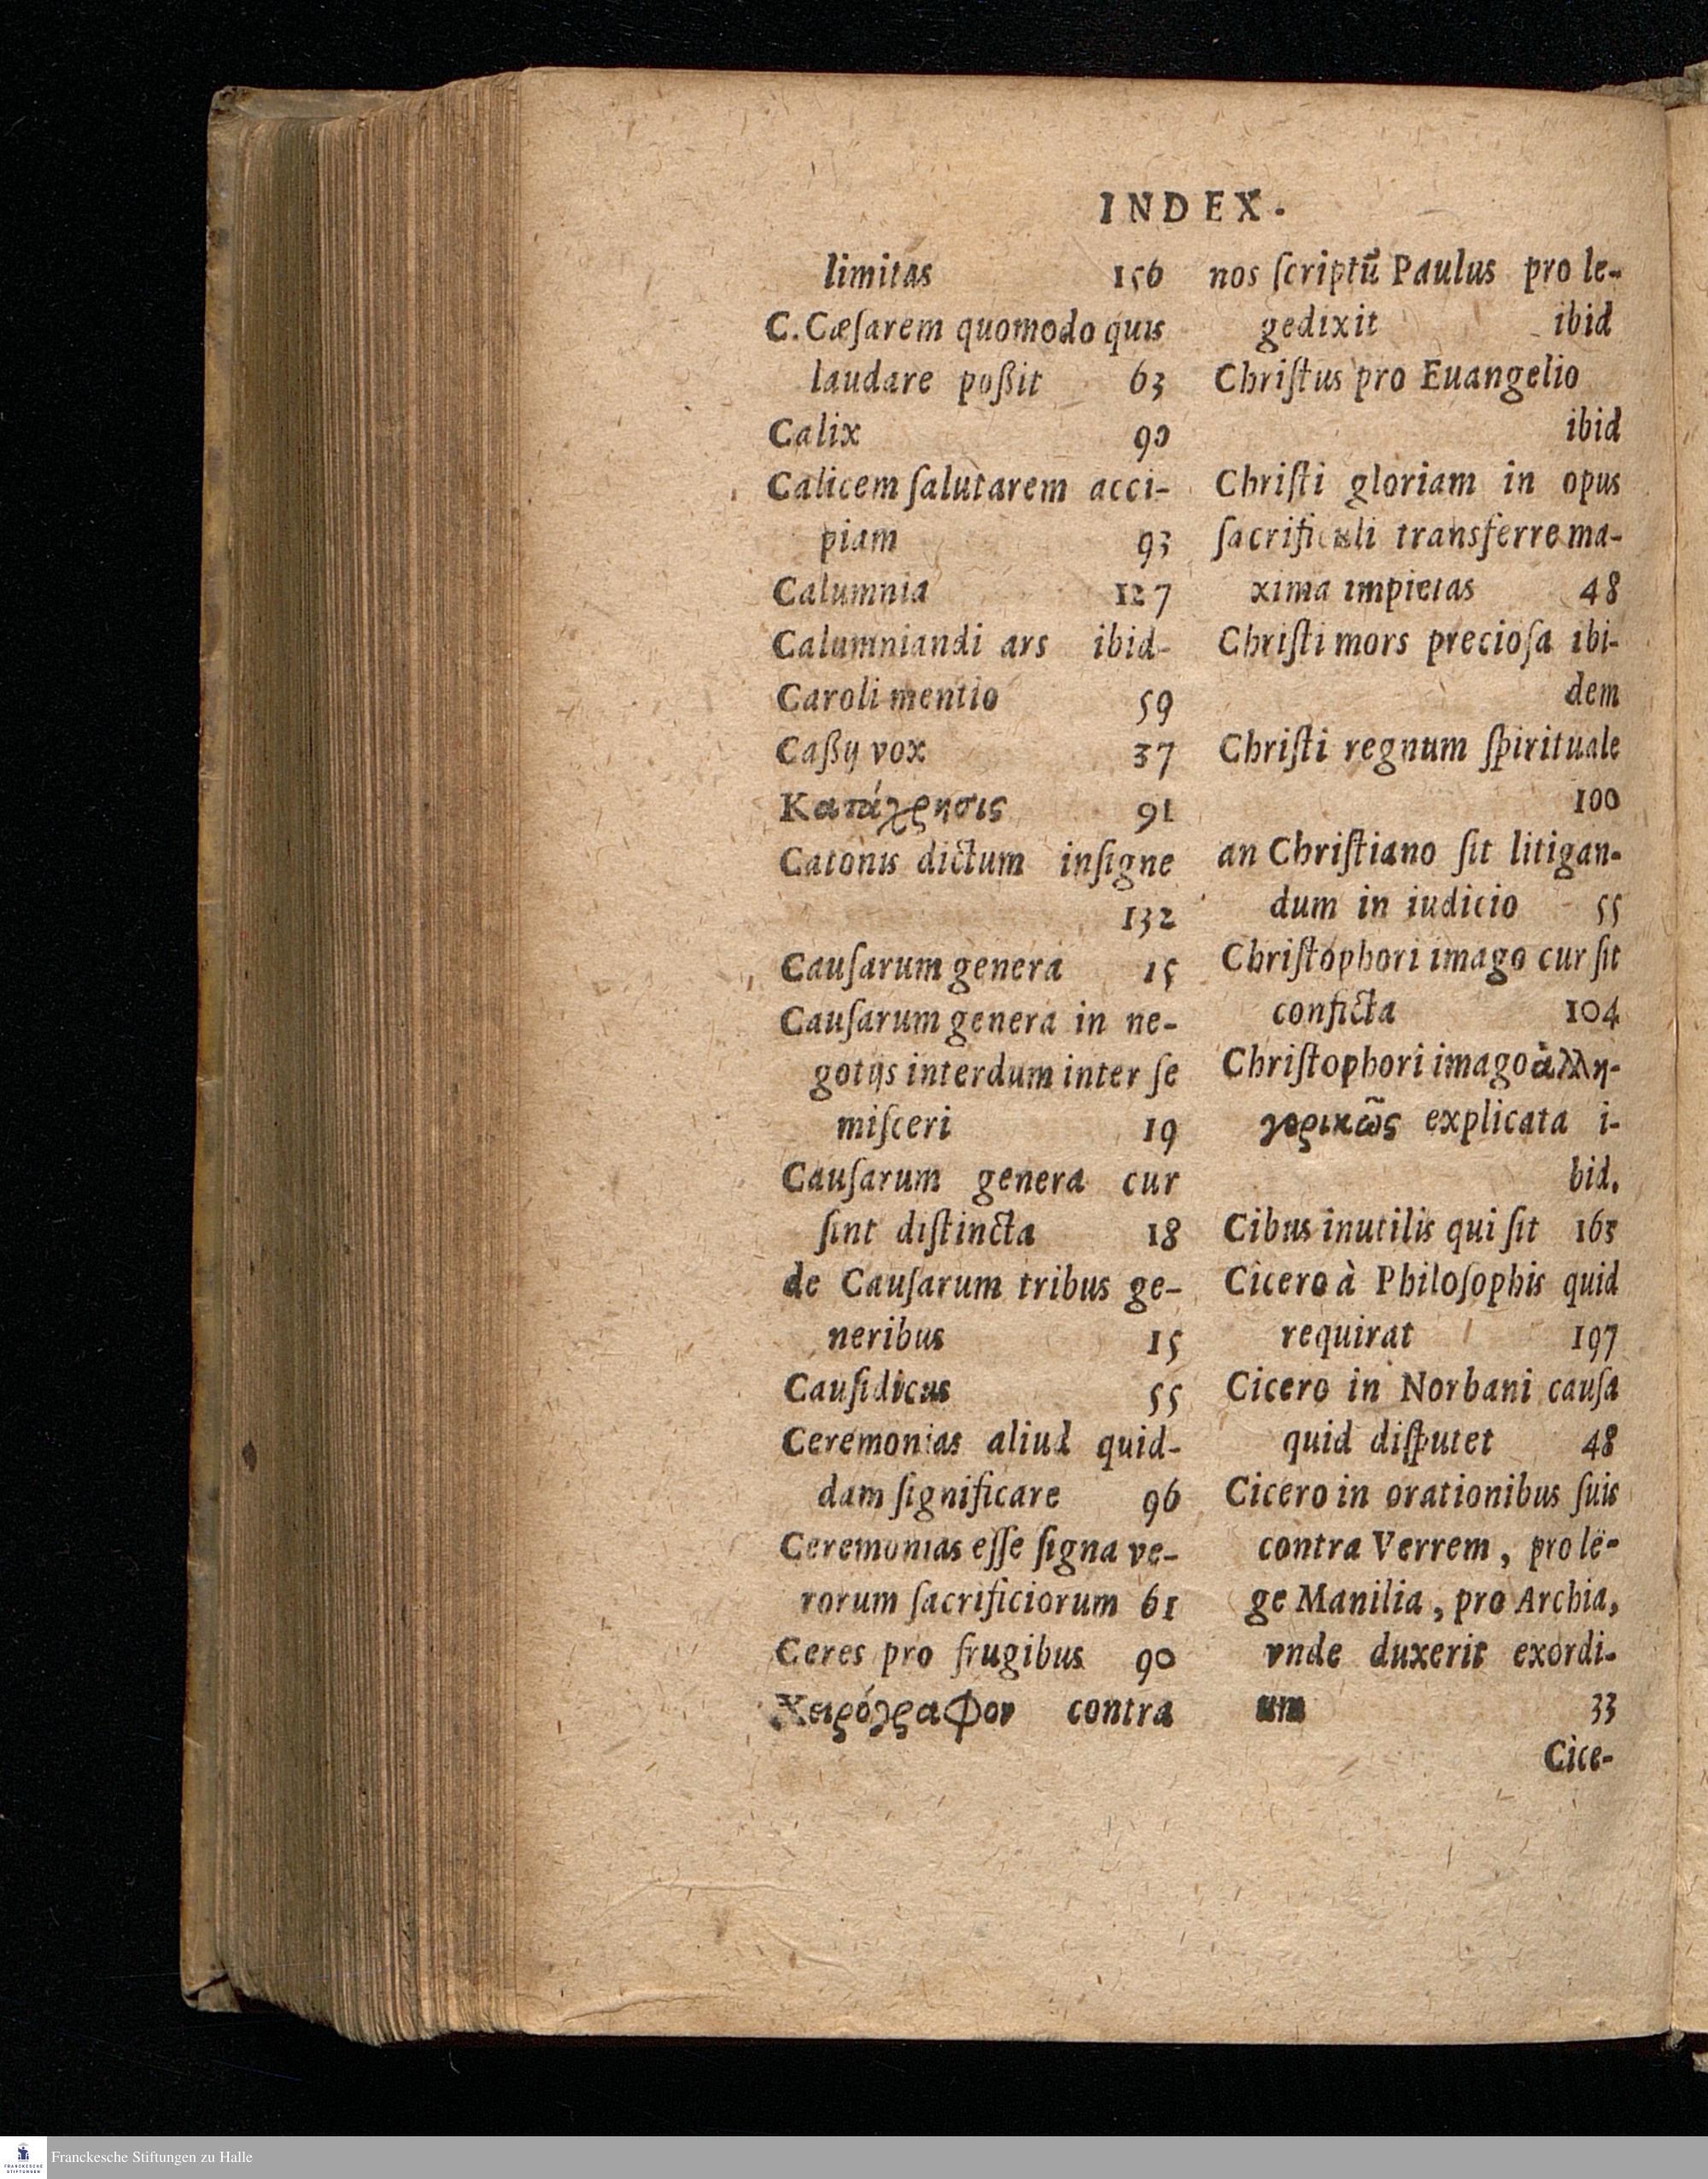 INDEX.
limitas 156
C. Cæſarem quomodo quis
laudare poßit 63
Calix 90
Calicem ſalutarem acci-
piam 93
Calumnia 127
Calumniandi ars ibid-
Caroli mentio 59
Caßij vox 37
Κατάχρησις 91
Catonis dictum inſigne
132
Cauſarum genera 15
Cauſarum genera in ne-
gotijs interdum inter ſe
miſceri 19
Cauſarum genera cur
ſint diſtincta 18
de Cauſarum tribus ge-
neribus 15
Cauſidicus 55
Ceremonias aliud quid-
dam ſignificare 96
Ceremonias eſſe ſigna ve-
rorum ſacrificiorum 61
Ceres pro frugibus 90
Χειρόγραφον contra
nos ſcriptū Paulus pro le-
gedixit ibid
Chriſtus pro Euangelio
ibid
Chriſti gloriam in opus
ſacrificuli transferre ma-
xima impietas 48
Chriſti mors precioſa ibi-
dem
Chriſti regnum ſpirituale
100
an Chriſtiano ſit litigan-
dum in iudicio 55
Chriſtophori imago cur ſit
conficta 104
Chriſtophori imago ἀλλη-
γορικῶς explicata i-
bid.
Cibus inutilis qui ſit 165
Cicero à Philoſophis quid
requirat 197
Cicero in Norbani cauſa
quid diſputet 48
Cicero in orationibus ſuis
contra Verrem, pro le-
ge Manilia, pro Archia,
vnde duxerit exordi-
um 33
Cice-
Franckesche Stiftungen zu Halle
FRANCKESCHE
STIFTUNGEN